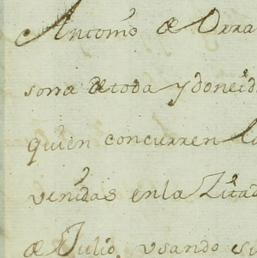 Antonio de Orra
sona de toda ydoneid
quien concurren la
venidas en la Zitad
de Julio, usando su